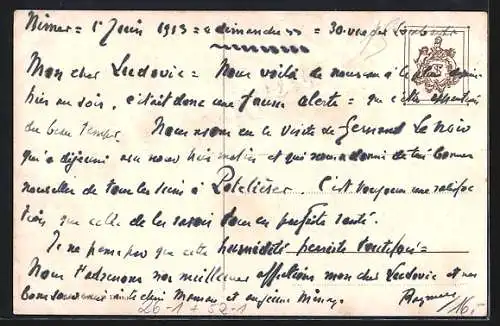 Nimes = 1er Juin 1913 = « dimanche » = 30. rue des Lombards
Mon cher Ludovic = Nous voilà de nouveau à la pluie depuis
hier au soir, c'était donc une fausse alerte = que cette apparition
du beau temps. Nous avons eu la visite de Fernand
qui a déjeuné avec nous hier matin et qui nous a donné de très bonnes
nouvelles de tous les siens à C'est toujours une satisfac
tion que celle de les savoir tous en parfaite santé.
Je ne pense pas que cette humidité persiste toutefois =
Nous t'adressons nos meilleures affections mon cher Ludovic et nos
bons souvenirs à ta chère Maman et au jeune Ménage
26-1 + 52-1
16,-